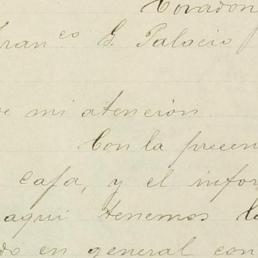 Covadon
Franco G. Palacio
e mi atención.
Con la presen
cafa, y el infor
aqui tenemos la
do en general con